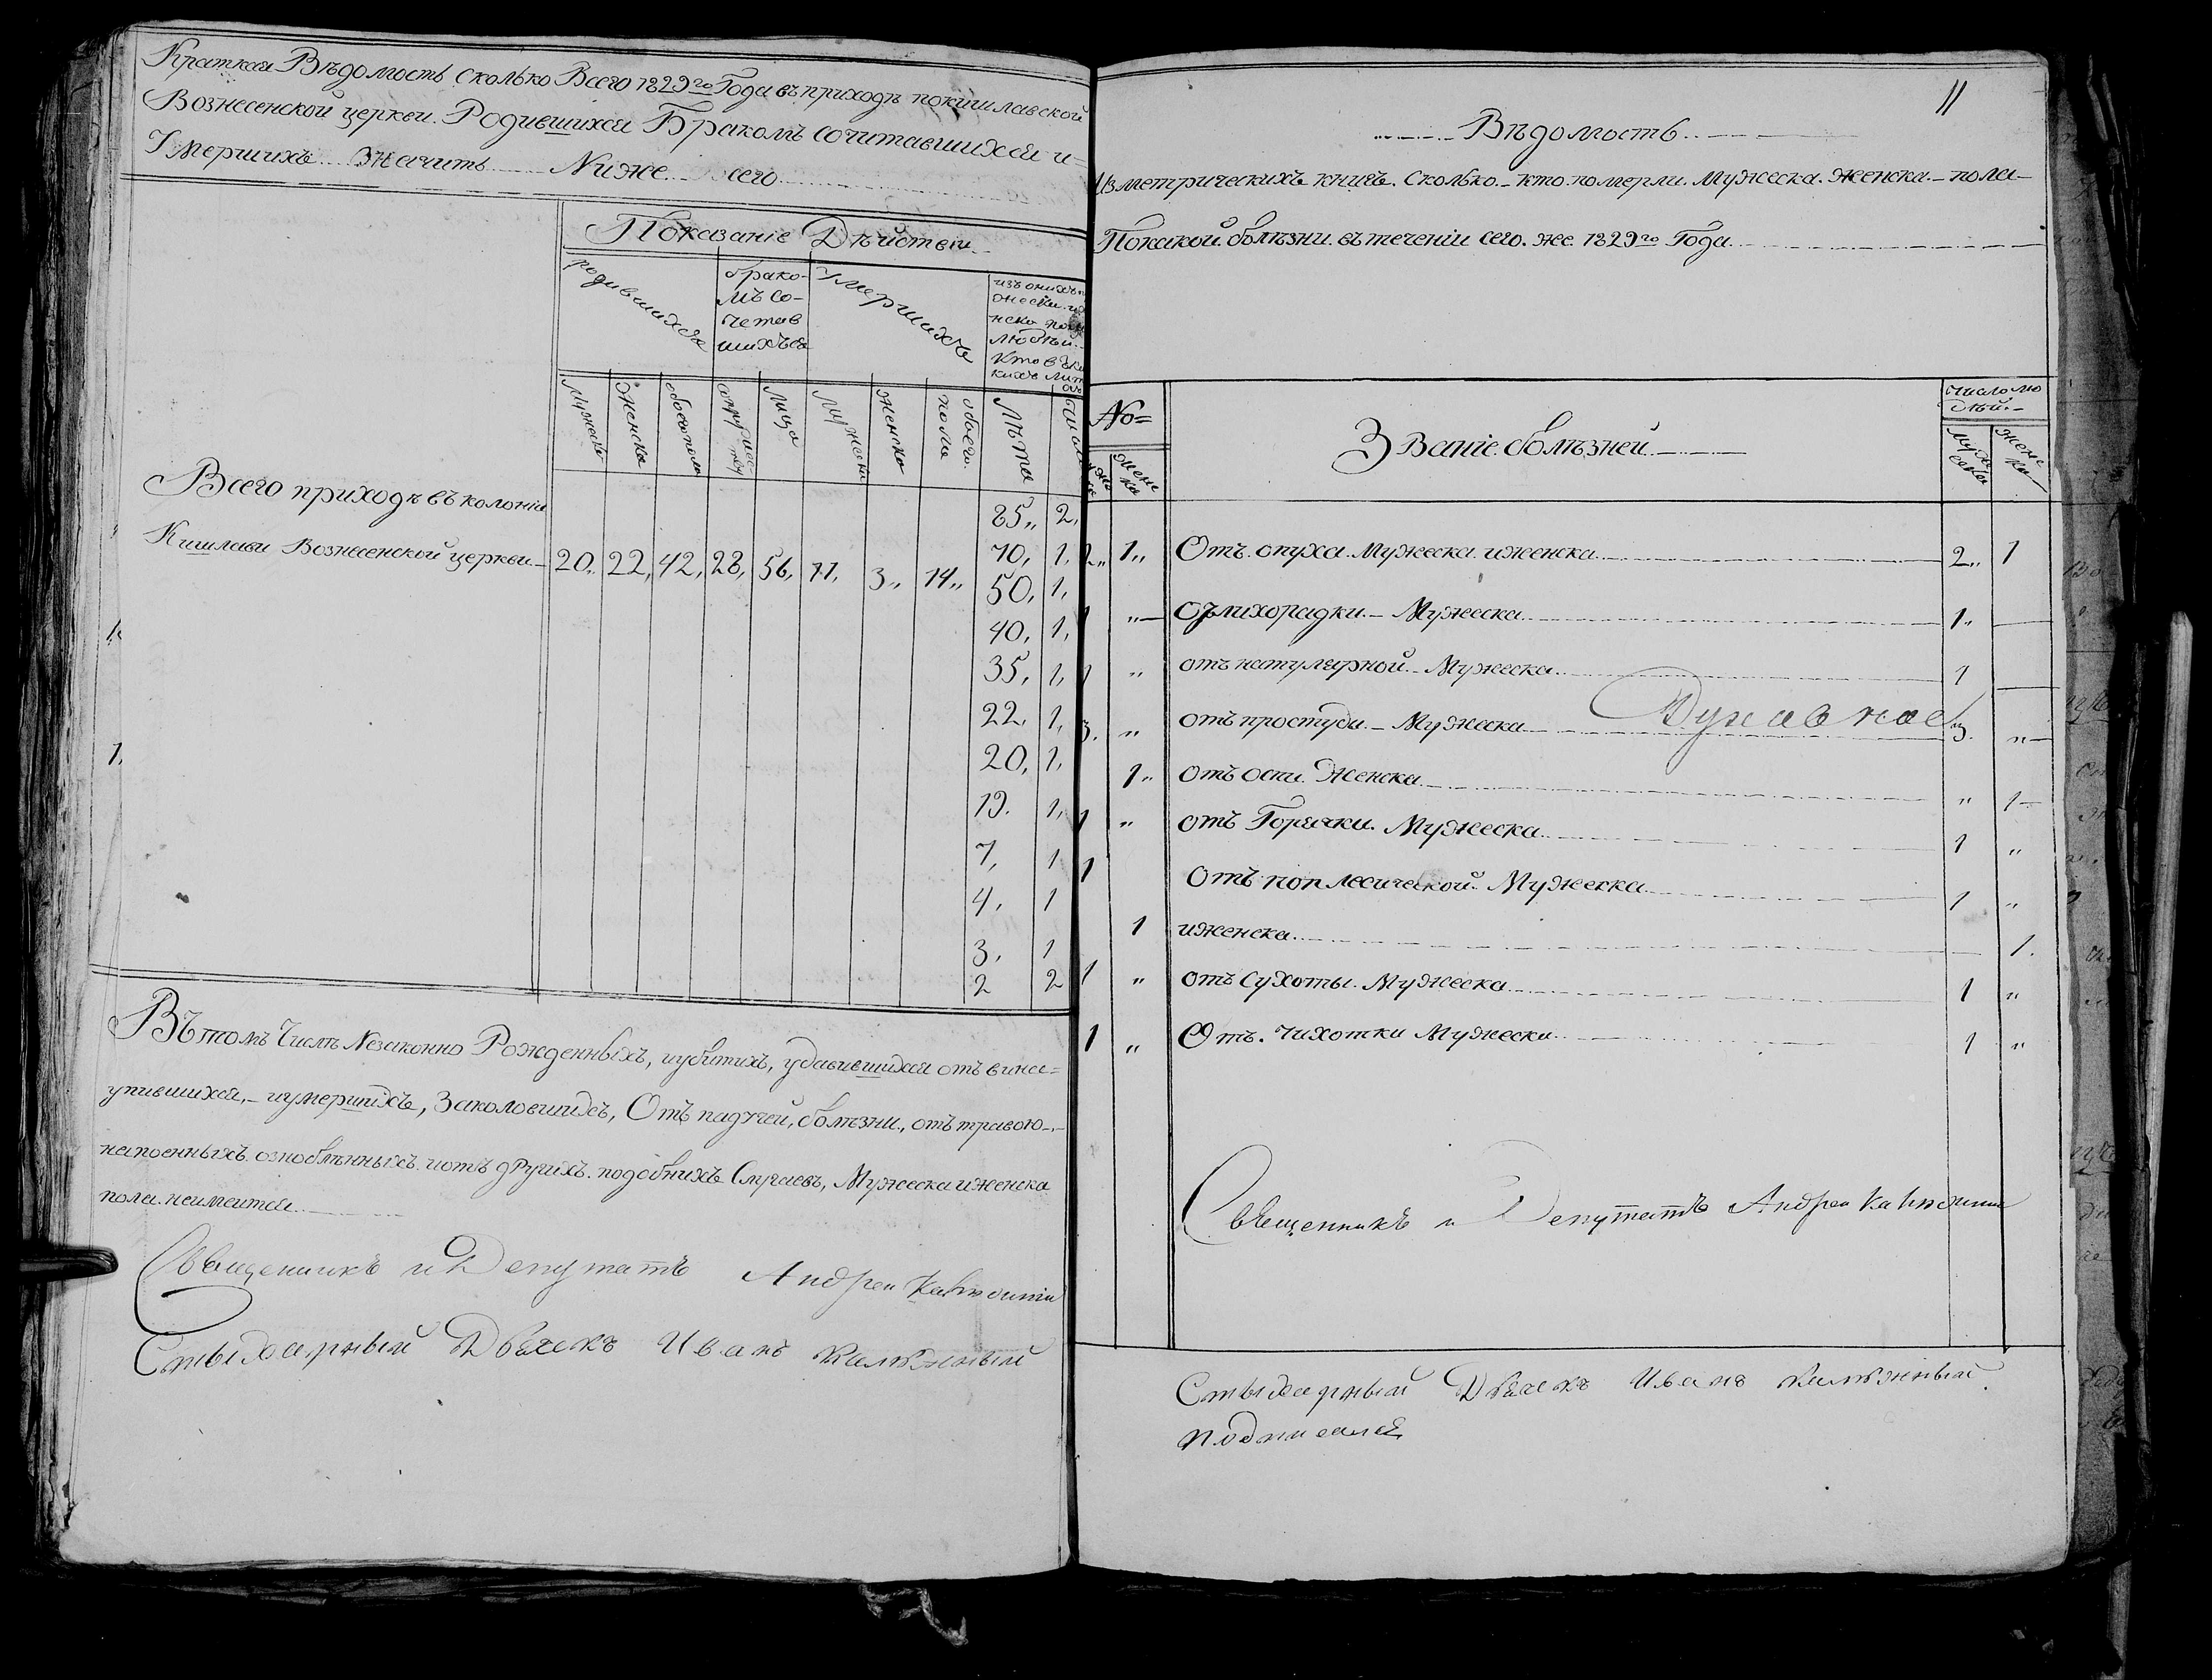 Краткая Вѣдомость сколько Всего 1829го Года въ приходѣ покишлавской
Вознесенской церкви. Родившихся Бракомъ сочитавшихся и=
Умершихъ значитъ Ниже сего
Показаніе Дѣйствій
родившихся
брако-
мъ со-
четав
шихъся
Умершихъ
изъ онихъ
Мужеска
Женска
обоего пола
Лица
Мужеска
Женска
обоего
пола
Лѣта
Число
Всего приходѣ въ колоніи
Кишлави Вознесенской церкви 20, 22, 42, 28, 56, 11, 3,, 14,,
85,, 2,
70, 1,
50, 1,
40, 1,
35, 1,
22, 1,
20, 1,
19. 1,
7, 1
4, 1
3, 1
2 2
Въ томъ Числѣ Незаконно Рожденныхъ, иубитихъ, удавившихся отъ вина=
упившихся,- иумершихъ, Заколовшихъ, Отъ падучей, болѣзни, отъ травою-
напоенныхъ ознобленныхъ иотъ другихъ подобнихъ Случаевъ, Мужеска иженска
пола неимеится
Священникъ и Депутатъ Андреи
Стыхарный Дьячекъ Иванъ
11
Вѣдомость
Изметрическихъ книгъ. Сколько кто померли. Мужеска. Женска. пола
Покакой болѣзни въ теченіи сего. же 1829го Года
No=
Женс
ка
Званіе болѣзней
Число лю
дѣй.
Муже
ска
Женс
ка
2,, 1,, Отъ опуха. Мужеска иженска 2,, 1
1 ,, Отъ лихорадки. Мужеска 1,
1 ,, отъ натулярной. Мужеска 1
3. ,, отъ простуди. Мужеска 3 ,,
1,, отъ оспи. Женска ,, 1
1 ,, отъ Горячки. Мужеска 1 ,,
1 Отъ поплесической. Мужеска 1 ,,
1 иженска 1.
1 ,, отъ Сухоты. Мужеска 1 ,,
1 ,, Отъ. Чихотки Мужеска 1 ,,
Священникъ и Депутатъ Андреи
Стыхарный Дьячекъ Иванъ
подписался